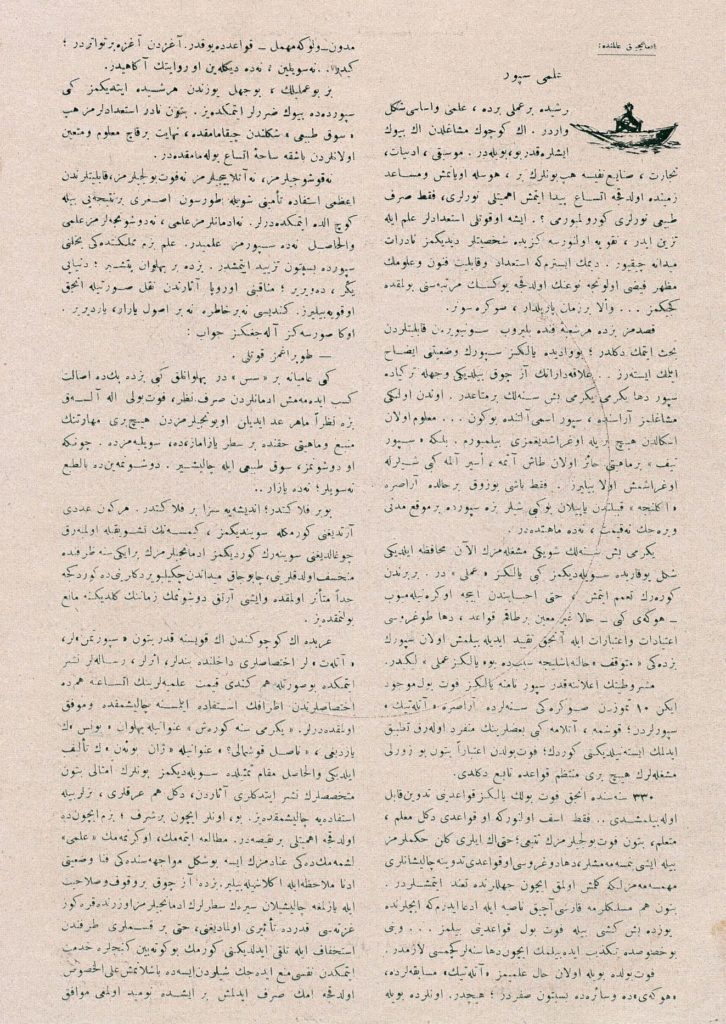 علمی سپور
رشیده بر عملی برده ، علمی واساسی شكل
واردر . اك كوچوك مشاغلدن اك بیوك
ایشلره قدر بو، بویله در . موسیقی ، ادبیات ،
تجارت ، صنایع نفیسه هب بونلرك بر ، هوسله اویاتمش ومساعد
زمینده اولدقجه اتساع پیدا ایتمش اهمیتلی نورلری، فقط صرف
طبیعی نورلری كورولمیورمی ؟ . ایشته اوقوتلی استعدادلر علم ایله
تزین ایدر ، تقویه اولنورسه كزیده شخصیتلر دیدیكمز نادرات
میدانه چیقیور . دیمك ایسترم كه استعداد وقابلیت فنون وعلومك
مظهر فیضی اولونجه نوعنك اولدقجه یوكسك مرتبه سنی بولمقده
كجیكمز ... والا بر زمان پارلدار ، صوكره سونر.
قصدمز بزده هرشعبۀ فنده بلیروب سونیویرن قابلیتلردن
بحث ایتمك دكلدر ؛ بووادیده یالكز سپورك وضعیتنی ایضاح
ایتمك ایسته رز .. علاقه دارانك از چوق بیلدیكی وجهله تركیاده
سپور دها یكرمی یكرمی بش سنه لك بر متاعدر . اوندن اولكی
مشاغلمز آراسنده ، سپور اسمی آلتنده بوكون ... معلوم اولان
اسكالدن هیچ بریله اوغراشدیغمزی بیلمیورم . بلكه « سپور
اوغراشمش اولا بیلیرز . فقط باشی بوزوق برحالده آراصره
« اكلنجه » قبیلندن یاپیلان بوكبی شیلر بزه سپورده بر موقع مدنی
ویره جك نه قیمت ، نه ده ماهیتده در .
یكرمی بش سنه لك شوبكی مشغله مزك الآن محافظه ایلدیكی
شكل یوقاریده سویله دیكمز كبی یالكز « عملی » در . بربرندن
كوره رك تعمم ایتمش ، حتی احسابندن ایجه اوكرنیله میوب
_ هوكه ی كبی _ حالا غیر معین بر طاقم قواعد ، دها طوغروسی
اعتیادات واعتبارات ایله آنجق تقید ایدیله بیلمش اولان سپورك
بزده كی « متوقف » حالنه اصلیجه سبب ده بوه یالكز عملی » لكدر .
مشروطیتك اعلاننه قدر سپور نامنه یالكز فوت بول موجود
ایكن ١٠ تموزدن صوكره كی سنه لرده آراصره « آتله تیك »
سپورلردن ؛ قوشمه ، آتلامه كبی بعضلرینك منفرد اوله رق تطبیق
ایدلمك ایسته نیلدیكنی كوردك؛ فوت بولدن اعتباراً بتون بو زورلی
مشغله لرك هیچ بری منتظم قواعده تابع دكلدی.
٣٣٠ سنه سنده آنجق فوت بولك یالكز قواعدینی تدوین قابل
اوله بیلمشدی .. فقط اسف اولنوركه او قواعدی دكل معلم ،
متعلم ، بتون فوت بولجیلرمز تتبعی؛ حتی اك ایلری كلن حكملرمز
بیله ایشی بنمسه مه مشلر، دها دوغروسی او قواعدی تدوینه چالیشانلری
بتون هم مسلكلرمه قارشی آچیق ناصیه ایله ادعا ایدرم كه ایچلرنده
یوزده بش كشی بیله فوت بول قواعدینی بیلمز ... وبنی
بو خصوصده تكذیب ایده بیلمك ایچون دها سنه لر كچمسی لازمدر .
فوت بولده بویله اولان حال علمیمز « آتله تیك » مسابقه لرده،
«هوكه ی» ده وسائره ده بسبتون صفردر ؛ هیچدر. اونلرده بویله
مدون _ ولوكه مهمل _ قواعدده یوقدر. آغزدن آغزه بر تواتردر ؛
كیدیور. . نه سویلین ؛ نه ده دیكله ین او روایتك آكاهیدر .
بز بوعملیلك ، بوجهل یوزندن هرشیده ایتدیكمز كبی
سپورده ده بیوك ضررلر ایتمكده یز . بتون نادر استعدادلرمز هپ
« سوق طبیعی » شكلندن چیقامامقده، نهایت برقاچ معلوم ومتعین
اولانلردن باشقه ساحۀ اتساع بوله مامقده در .
نه قوشوجیلرمز، نه آتلاییجیلرمز، نه فوت بولجیلرمز، قابلیتلرندن
اعظمی استفاده تأمینی شویله طورسون اصغری بر نتیجه یی بیله
كوچ الده ایتمكده درلر. نه ادمانلرمز علمی ، نه دوشونجه لرمز علمی
والحاصل نه ده سپورمز علمیدر . علم بزم مملكتده كی بخلنی
سپورده بسبتون تزیید ایتمشدر . بزده بر پهلوان یتیشیر ؛ دنیایی
یكر ، ده ویریر ؛ مناقبنی اوروپا آثارندن نقل صورتیله آنجق
اوقویه بیلیرز. كندیسی نه بر خاطره نه بر اصول یازار ، یازدیریر .
اوكا صورسه كز آله جغكز جواب :
— طوپراغمز قوتلی .
كبی عامیانه بر « سس » در . پهلوانلق كبی بزده پك ده اصالت
كسب ایده مه مش ادمانلردن صرف نظر، فوت بولی اله آلسـه ق
بزه نظراً ماهر عد ایدیلن اویونجیلرمزدن هیچ بری مهارتنك
منبع وماهیتی حقنده بر سطر یازاماز،ده، سویلیه مزده . چونكه
او دوشونمز، سوق طبیعی ایله چالیشیر . دوشونمه ین ده بالطبع
نه سویلر ؛ نه ده یازار ..
بوبر فلاكتدر؛ اندیشه یه سزا بر فلاكتدر. هركون عددی
آرتدیغنی كورمكله سویندیكمز ، كیمسه نك تشویقیله اولمیه رق
چوغالدیغنی سوینه رك كوردیكمز ادمانجیلرمزك بر ایكی سنه ظرفنده
منخسف اولدقلرینی، چابوجاق میداندن چكیلیویردكلرینی ده كوردكجه
جداً متأثر اولمقده وایشی آرتق دوشونمك زماننك كلدیكنه مانع
بولنمقده یز .
غربده اك كوچوكندن اك قویسنه قدر بتون « سپورتمن »لر،
« آتله ت » لر اختصاصلری داخلنده بندلر، اثرلر ، رساله لر نشر
ایتمكده بوصورتله هم كندی قیمت علمیه لرینك اتساعنه هم ده
اختصاصلرندن اطرافك استفاده ایتمسنه چالیشمقده وموفق
اولمقده درلر. « یكرمی سنه كوره ش » عنوانیله پهلوان « پونس » ك
یازدیغی ، « ناصل قوشمالی؟ » عنوانیله « ژان بوئن » ك تألیف
ایلدیكی والحاصل مقام تمثیلده سویله دیكمز بونلرك امثالی بتون
متخصصلرك نشر ایتدكلری آثاردن، دكل هم عرقلری ، بزلر بیله
استفاده یه چالیشمقده یز. بو، اونلر ایچون بر شرف ؛ بزم ایچون ده
اولدقجه اهمیتلی بر نقیصه در. مطالعه ایتمه مك، اوكرنمه مك «علمی»
لشمه مك ده كی عنادمزك ایسه بو شكل مواجهه سنده كی فنا وضعیتی
ادنا ملاحظه ایله اكلاشیله بیلیر. بزده از چوق بر وقوف وصلاحیت
ایله یازلمغه چالیشیلان سیره ك سطرلرك ادمانجیلرمز اوزرنده قره كوز
غزته سی قدرده تأثیری اولمادیغی، حتی بر قسملری طرفندن
استخفاف ایله تلقی ایدلدیكنی كورمك بوكونه یین كنجلره خدمت
ایتمكدن نفسی منع ایده جك شیلردن ایسه ده باشلانمش علی الخصوص
اولدقجه امك صرف ایدلمش بر ایشده نومید اولمغی موافق